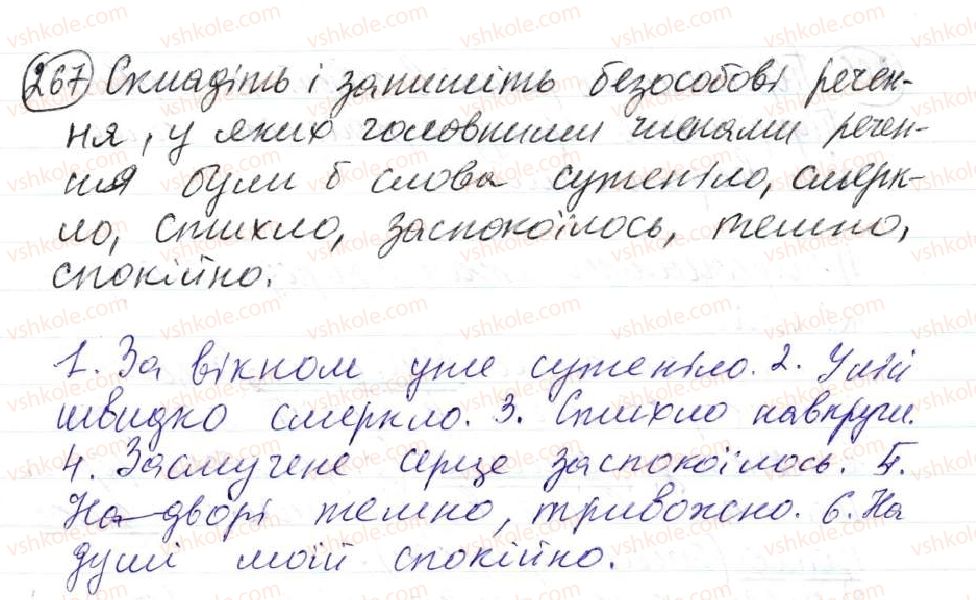 267 Складіть і запишіть безособові речен-
ня, у яких головними членами речен-
ня були б слова сутеніло, смерк-
ло, стихло, заспокоїлось, темно,
спокійно.
1. За вікном уже сутеніло. 2. У лісі
швидко смеркло. 3. Стихло навкруги.
4. Засмучене серце заспокоїлось. 5.
На дворі темно, тривожно. 6. На
душі моїй спокійно.